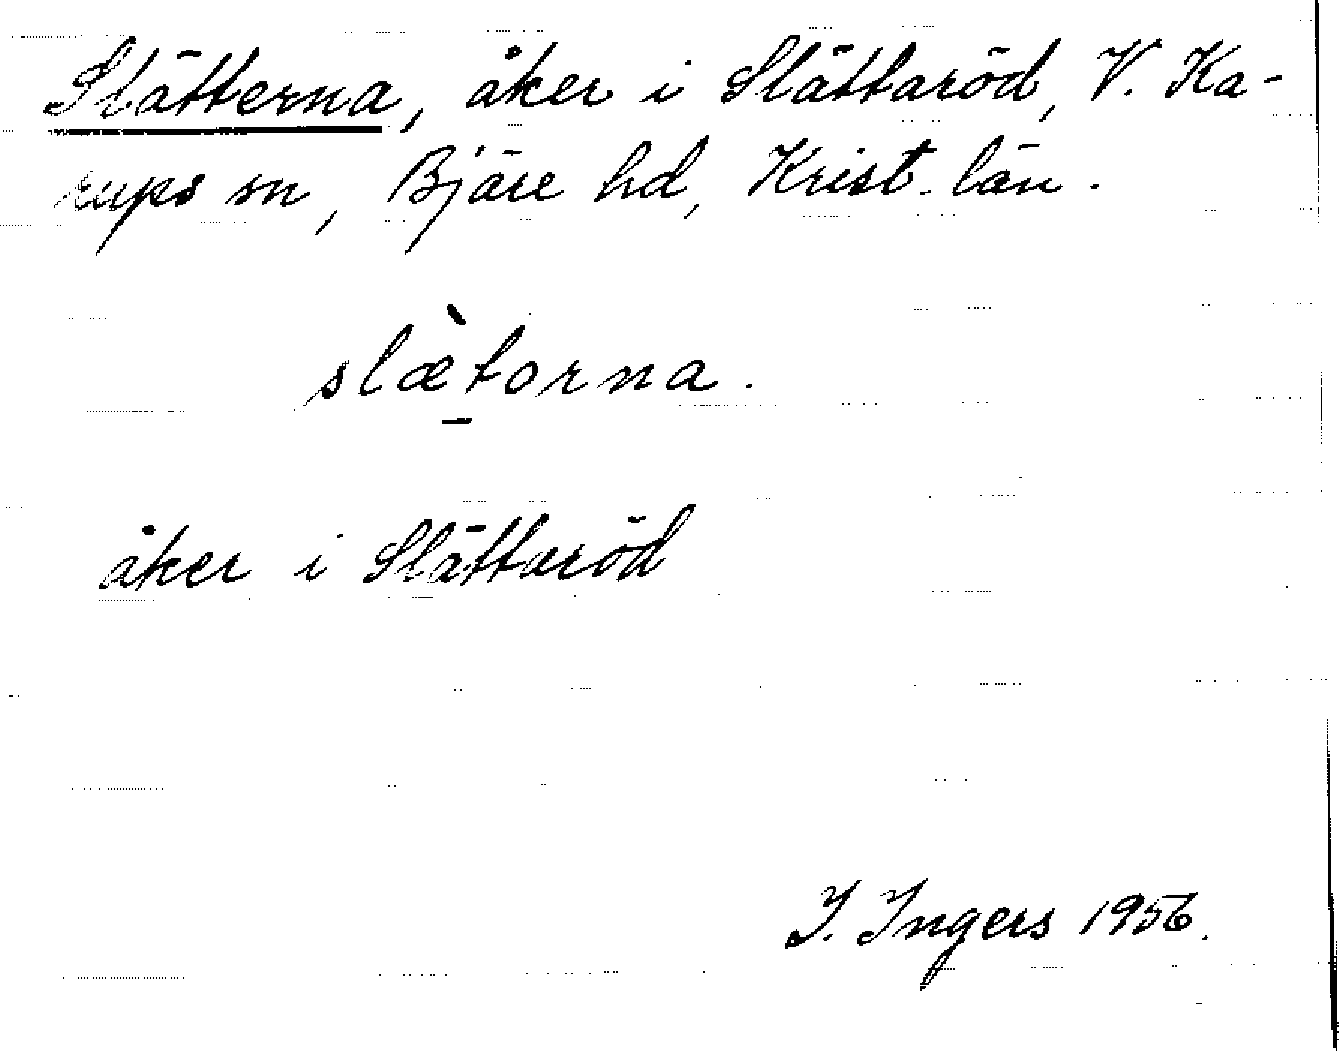 Slätterna, åker i Slättaröd, V. Ka-
rups sn, Bjäre hd, Krist. län.
slæ̀torna.
åker i Slättaröd
I. Ingers 1956.